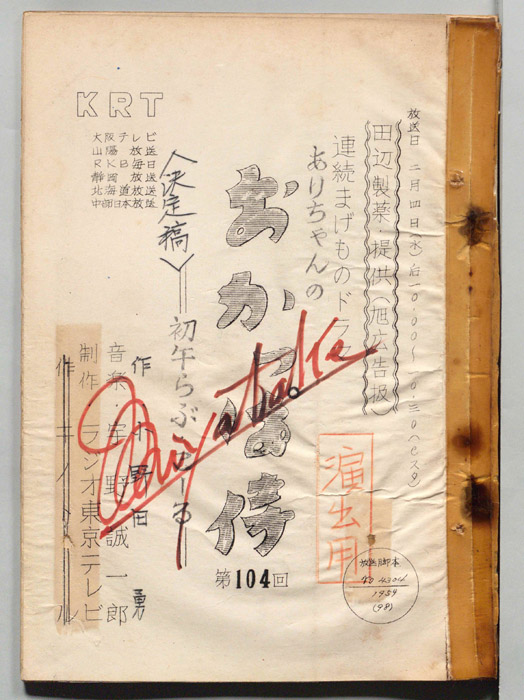 放送日 二月四日(水)后一〇・〇〇〜一〇・三〇
田辺製薬・提供(旭広告扱)
連続まげものドラマ
ありちゃんの
おかっぱ侍
第104回
初午らぶしーる
〈決定稿〉
KRT
大阪テレビ
山陽放送
RKB毎日
静岡放送
北海道放送
作 小野田勇
音楽・宇野誠一郎
制作 ラジオ東京テレビ
演出用
放送脚本
1959
(98)